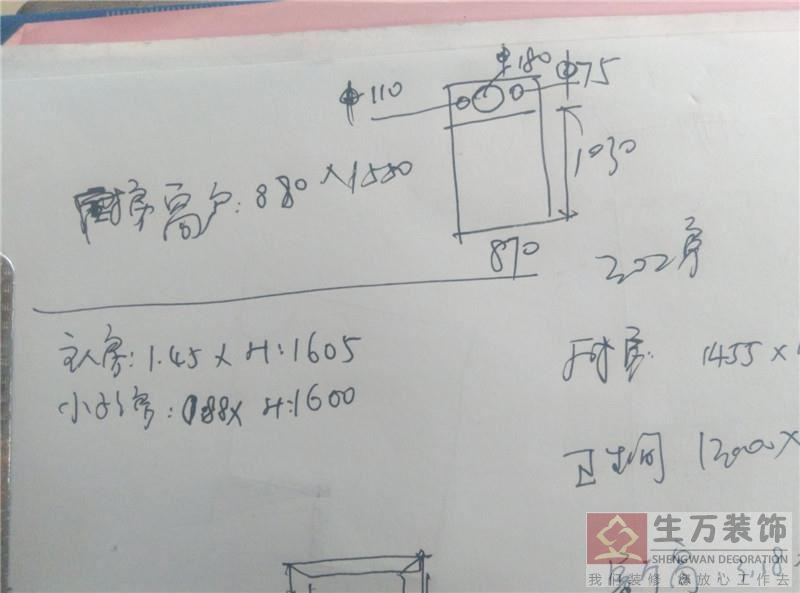 Φ180
Φ75
Φ110
1030
厨房窗户: 880×1550
870
202房
主人房: 1.45 × H:1605
小的房: 088× H:1600
厨房: 1455×
卫生间 1200×
生万装饰
SHENGWAN DECORATION
我们装修 您放心工作去